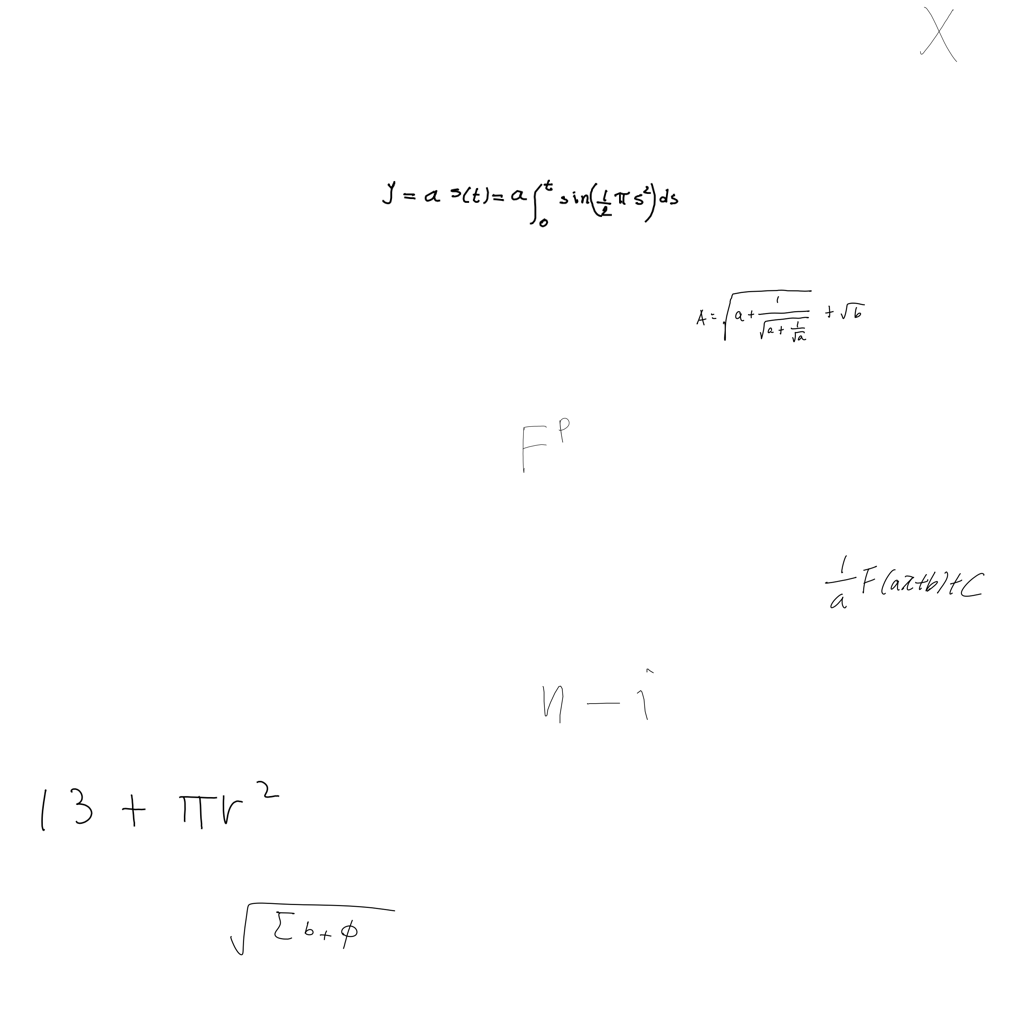 X
y = a s(t) = a ∫₀ᵗ sin(½ π s²) ds
A = √(a + 1/√(a + 1/√a)) + √b
Fᵖ
1/a F(ax+b)+C
n − i
13 + πr²
√(Σ b + ϕ)